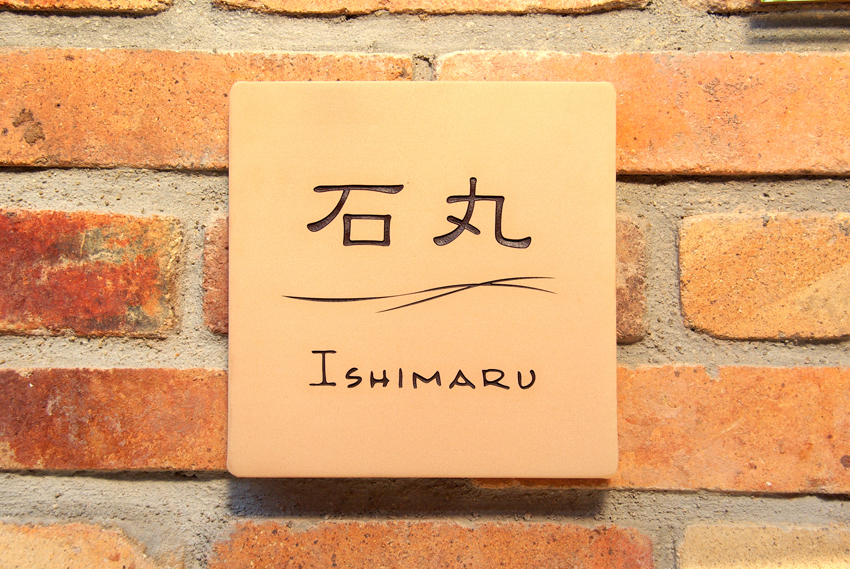 石丸
ISHIMARU